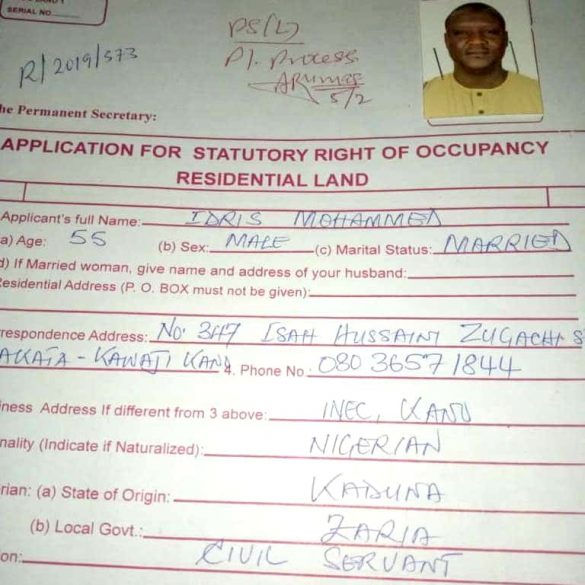 SERIAL NO
R/2019/573
PS(L)
Pl. Process
5/2
he Permanent Secretary:
APPLICATION FOR STATUTORY RIGHT OF OCCUPANCY
RESIDENTIAL LAND
Applicant's full Name: IDRIS MOHAMMED
a) Age: 55 (b) Sex: MALE (c) Marital Status: MARRIED
d) If Married woman, give name and address of your husband:
Residential Address (P. O. BOX must not be given):
rrespondence Address: No. 347 ISAH HUSSAINI ZUGACHI S
AKATA - KAWAJI KANO 4. Phone No.: 080 3657 1844
iness Address If different from 3 above: INEC, KANO
nality (Indicate if Naturalized): NIGERIAN
rian: (a) State of Origin: KADUNA
(b) Local Govt.: ZARIA
on: CIVIL SERVANT